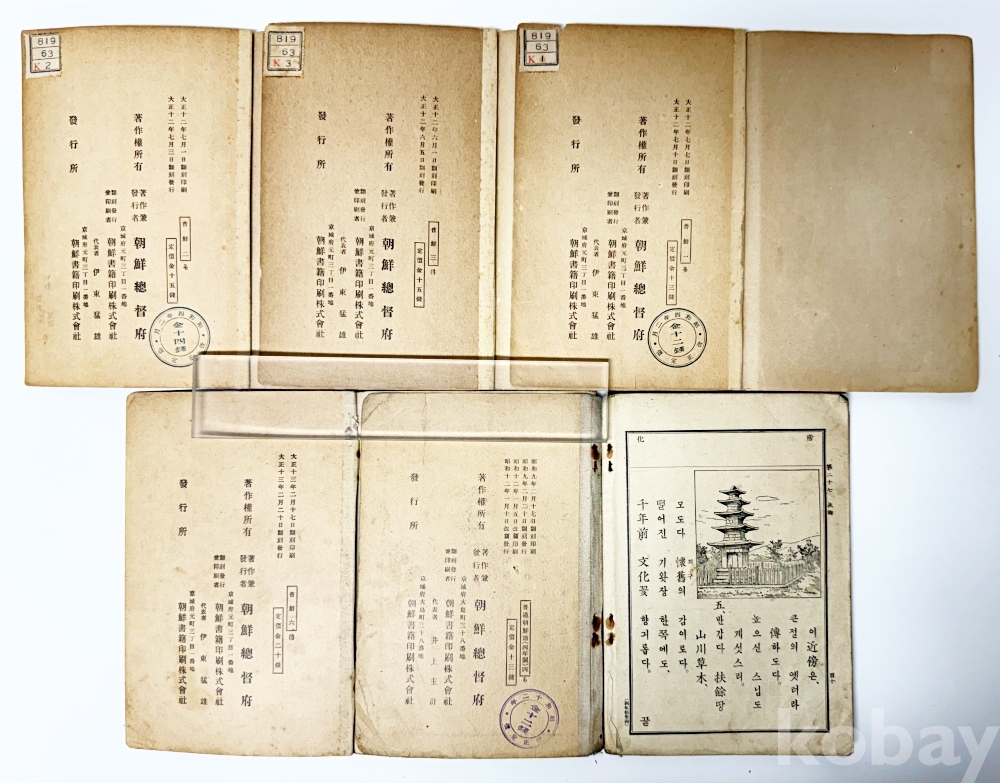 819
63
K 2
大正十二年七月一日翻刻印刷
大正十二年七月三日翻刻發行
著作權所有
發行所
著作兼
發行者
朝鮮總督府
翻刻發行
兼印刷者
京城府元町三丁目一番地
朝鮮書籍印刷株式會社
代表者 伊東猛雄
朝鮮書籍印刷株式會社
普鮮二
定價金十五錢
昭和四年二月
金十四錢
819
63
K 3
大正十二年六月一日翻刻印刷
大正十二年六月五日翻刻發行
著作權所有
發行所
著作兼
發行者
朝鮮總督府
翻刻發行
兼印刷者
京城府元町三丁目一番地
朝鮮書籍印刷株式會社
代表者 伊東猛雄
朝鮮書籍印刷株式會社
普鮮三
定價金十五錢
819
63
K
大正十二年七月七日翻刻印刷
大正十二年七月十日翻刻發行
著作權所有
發行所
著作兼
發行者
朝鮮總督府
翻刻發行
兼印刷者
京城府元町三丁目一番地
朝鮮書籍印刷株式會社
代表者 伊東猛雄
朝鮮書籍印刷株式會社
普鮮一
定價金十三錢
昭和四年二月
金十二錢
大正十三年二月十七日翻刻印刷
大正十三年二月二十日翻刻發行
著作權所有
發行所
著作兼
發行者
朝鮮總督府
翻刻發行
兼印刷者
京城府元町三丁目一番地
朝鮮書籍印刷株式會社
代表者 伊東猛雄
朝鮮書籍印刷株式會社
普鮮六
定價金二十錢
昭和九年二月十七日翻刻印刷
昭和九年二月二十日翻刻發行
昭和十二年一月五日改訂印刷
昭和十二年一月十日改訂發行
著作權所有
發行所
著作兼
發行者
朝鮮總督府
翻刻發行
兼印刷者
京城府大島町三十八番地
朝鮮書籍印刷株式會社
代表者 井上主計
京城府大島町三十八番地
朝鮮書籍印刷株式會社
定價金十三錢
金十二錢
第二十七
百十
이近傍은、
큰절의 옛터라
傳하도다。
높으신 스님도
계섯스리。
五、반갑다 扶餘땅
山川草木、
모도다 懷舊의
감이로다。
떨어진 기와장
한쪽에도、
千年前 文化꽃
향긔롭다。
끝
kobay